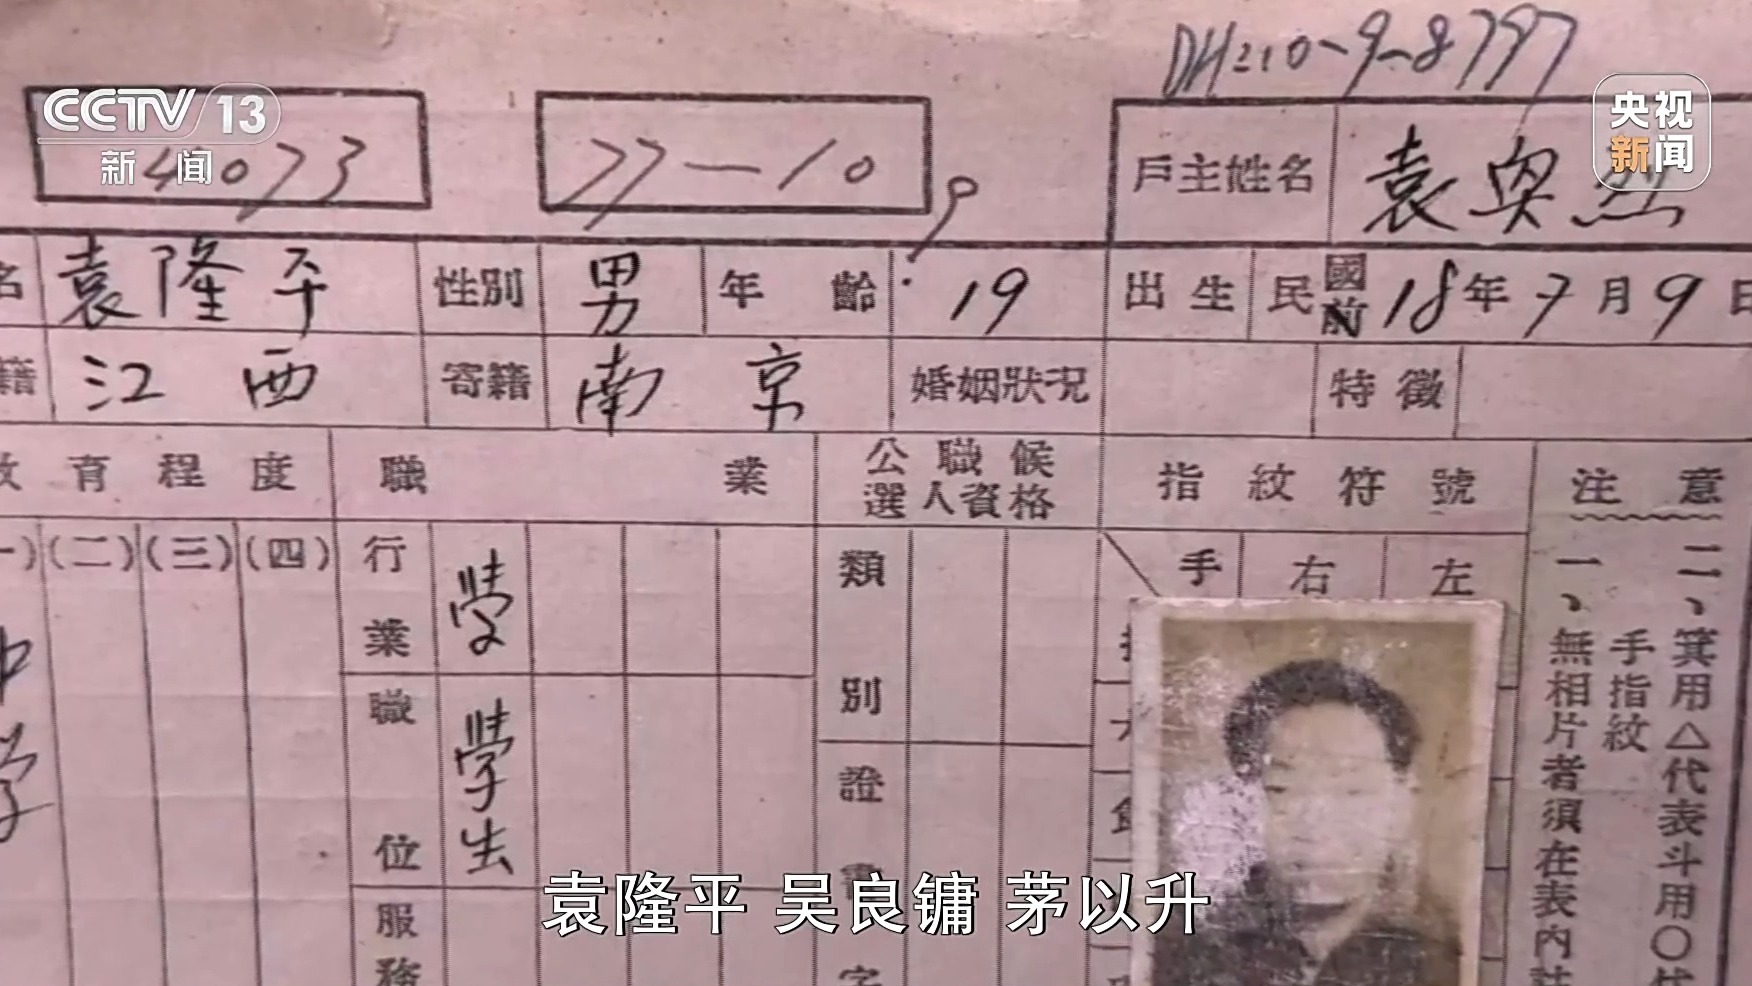 DH:10-9-8797
CCTV 13
新闻
央视
新闻
4073
27-10
9
戶主姓名 袁奐烈
名 袁隆平 性別 男 年齡 19 出生 民國前 18年7月9日
籍 江西 寄籍 南京 婚姻狀況 特徵
教育程度 職業 公職候選人資格 指紋符號 注意
(一)(二)(三)(四) 行業 學 類別 手 右 左
中學
職位 學生 證書字
服務
二、箕用△代表斗用〇代
手指紋
一、無相片者須在表內註
袁隆平 吴良镛 茅以升